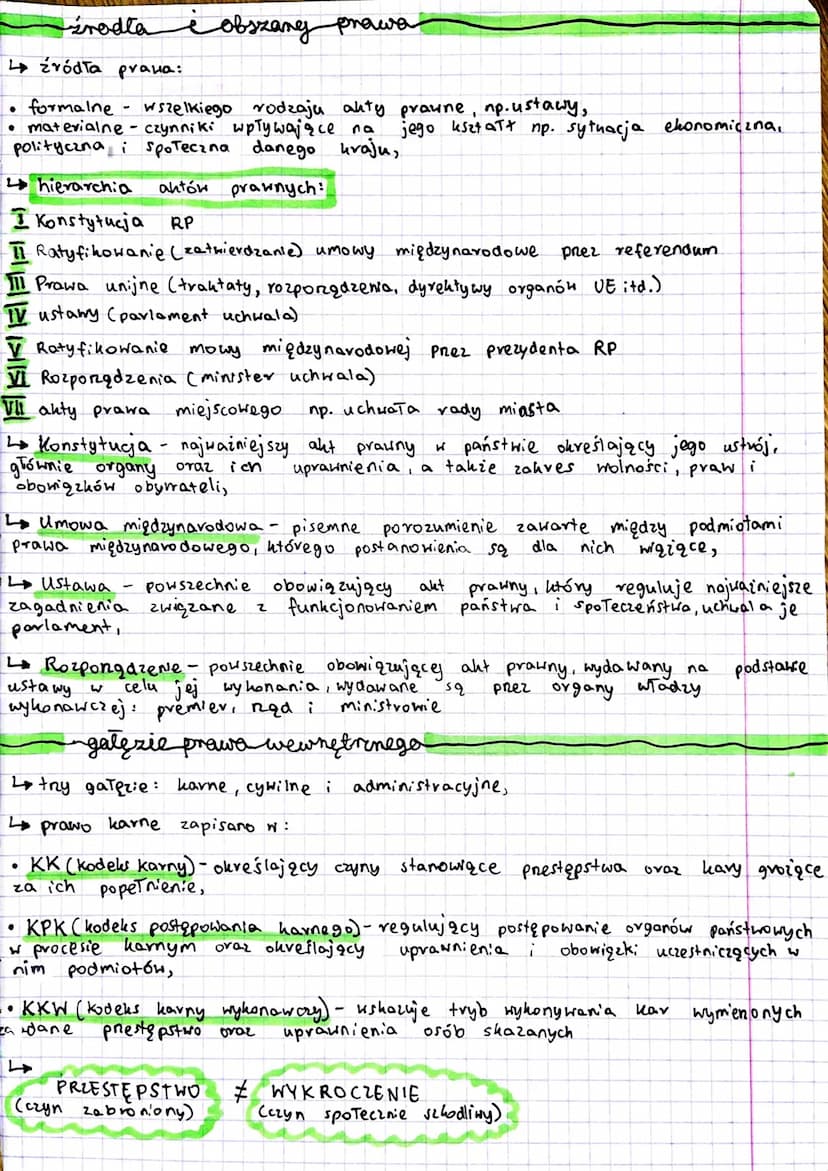 źródła i obszary prawa
↳ źródła prawa:
• formalne - wszelkiego rodzaju akty prawne, np. ustawy,
• materialne - czynniki wpływające na jego kształt np. sytuacja ekonomiczna,
polityczna i społeczna danego kraju,
↳ hierarchia aktów prawnych:
I Konstytucja RP
II Ratyfikowanie (zatwierdzanie) umowy międzynarodowe przez referendum
III Prawa unijne (traktaty, rozporządzenia, dyrektywy organów UE itd.)
IV ustawy (parlament uchwala)
V Ratyfikowanie mowy międzynarodowej przez prezydenta RP
VI Rozporządzenia (minister uchwala)
VII akty prawa miejscowego np. uchwała rady miasta
↳ Konstytucja - najważniejszy akt prawny w państwie określający jego ustrój,
głównie organy oraz ich uprawnienia, a także zakres wolności, praw i
obowiązków obywateli,
↳ Umowa międzynarodowa - pisemne porozumienie zawarte między podmiotami
prawa międzynarodowego, którego postanowienia są dla nich wiążące,
↳ Ustawa - powszechnie obowiązujący akt prawny, który reguluje najważniejsze
zagadnienia związane z funkcjonowaniem państwa i społeczeństwa, uchwala je
parlament,
↳ Rozporządzenie - powszechnie obowiązującej akt prawny, wydawany na podstawie
ustawy w celu jej wykonania, wydawane są przez organy władzy
wykonawczej: premier, rząd i ministrowie
gałęzie prawa wewnętrznego
↳ trzy gałęzie: karne, cywilne i administracyjne,
↳ prawo karne zapisano w:
• KK (kodeks karny) - określający czyny stanowiące przestępstwa oraz kary grożące
za ich popełnienie,
• KPK (kodeks postępowania karnego) - regulujący postępowanie organów państwowych
w procesie karnym oraz określający uprawnienia i obowiązki uczestniczących w
nim podmiotów,
• KKW (kodeks karny wykonawczy) - wskazuje tryb wykonywania kar wymienionych
za dane przestępstwo oraz uprawnienia osób skazanych
↳
PRZESTĘPSTWO ≠ WYKROCZENIE
(czyn zabroniony) (czyn społecznie szkodliwy)